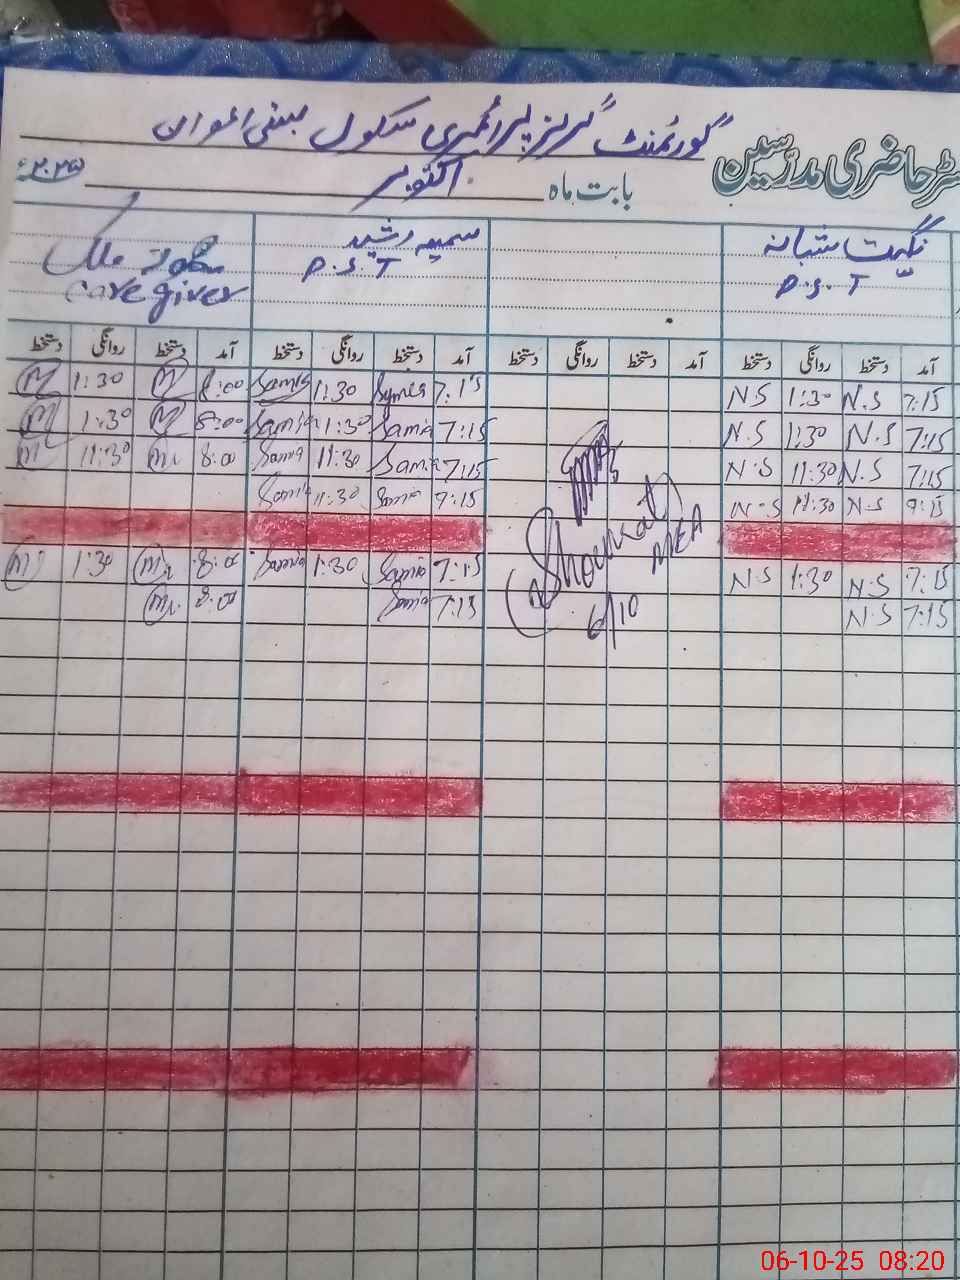 گورنمنٹ گرلز پرائمری سکول بستی اعوان
رجسٹر حاضری مدرسین
بابت ماہ اکتوبر ۲۰۲۵ء
نگہت شبانہ سمیعہ رشید ملک
P.S.T P.S.T Care giver
آمد دستخط روانگی دستخط آمد دستخط روانگی دستخط آمد دستخط روانگی دستخط آمد دستخط روانگی دستخط
7:15 N.S 1:30 N.S 7:15 1:30 Samia 8:00 M 1:30 M
7:15 N.S 1:30 N.S 7:15 Samia 1:30 Samia 8:00 M 1:30 M
7:15 N.S 11:30 N.S 7:15 Samia 11:30 Samia 8:00 M 11:30 M
7:15 N.S 11:30 N.S 7:15 Samia 11:30 Samia
7:15 N.S 1:30 N.S 7:15 Samia 1:30 Samia 8:00 M 1:30 M
7:15 N.S 7:15 Samia 8:00 M
Shoukat
MEA
6/10
06-10-25 08:20